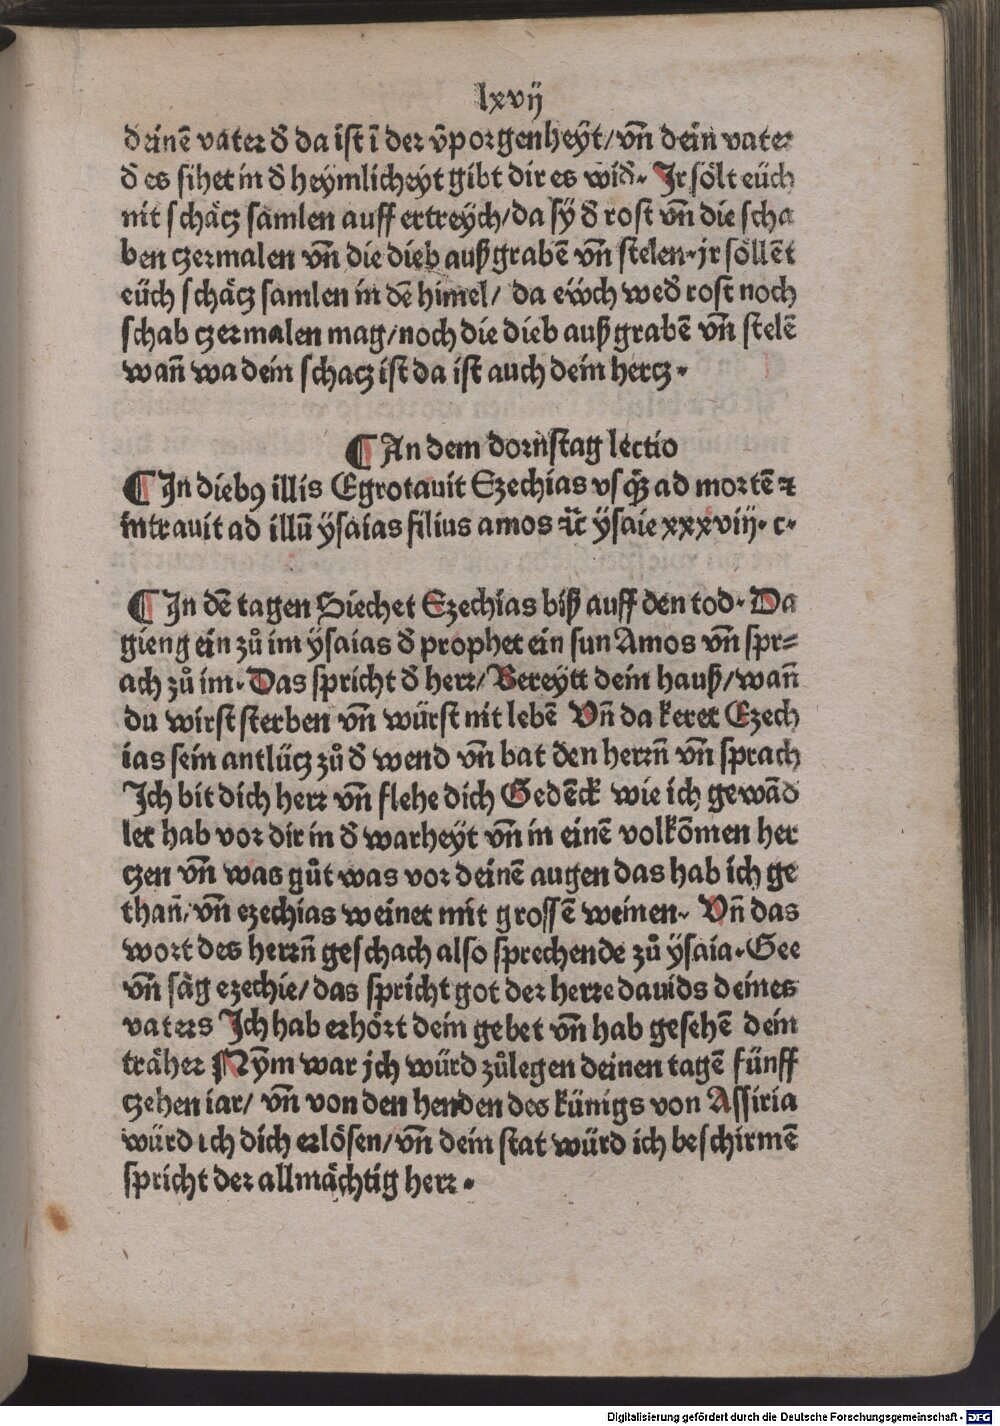 lxvij
deinē vater d̄ da ist ī der v̄porgenheÿt/ vn̄ dein vater
d̄ es sihet in d̄ heÿmlicheyt gibt dir es wid̄. Jr sölt eüch
nit schäcz samlen auff ertreÿch/ da sÿ d̄ rost vn̄ die scha
ben czermalen vn̄ die dieb außgrabē vn̄ stelen. jr söllēt
eüch schäcz samlen in dē himel/ da eẅch wed̄ rost noch
schab czermalen mag/ noch die dieb auß graben̄ vn̄ stelē
wan̄ wa dein schacz ist da ist auch dein hercz.
¶ An dem dornstag lectio
¶ In diebꝯ illis Egrotauit Ezechias vsqꝫ ad mortē ⁊
intrauit ad illū ÿsaias filius amos ⁊c̄ ÿsaie xxxviij. c.
¶ In dē tagen Siechet Ezechias biß auff den tod. Da
gieng ein zů im ÿsaias d̄ prophet ein sun Amos vn̄ spr=
ach zů im. Das spricht d̄ herr/ Bereÿtt dein hauß/ wan̄
du wirst sterben vn̄ würst nit lebē Vn̄ da keret Ezech
ias sein antlücz zů d̄ wend vn̄ bat den herrn̄ vn̄ sprach
Ich bit dich herr vn̄ flehe dich Gedēck wie ich gewād
let hab vor dir in d̄ warheÿt vn̄ in einē volkōmen her
czen vn̄ was gůt was vor deinē augen das hab ich ge
than̄/ vn̄ ezechias weinet mit grossē weinen. Vn̄ das
wort des herrn̄ geschach also sprechende zů ÿsaia. Gee
vn̄ säg ezechie/ das spricht got der herre dauids deines
vaters Ich hab erhört dein gebet vn̄ hab gesehē dein
träher Nȳm war jch würd zůlegen deinen tagē fünff
czehen iar/ vn̄ von den henden des künigs von Assiria
würd ich dich erlösen/ vn̄ dein stat würd ich beschirmē
spricht der allmächtig herr.
Digitalisierung gefördert durch die Deutsche Forschungsgemeinschaft - DFG